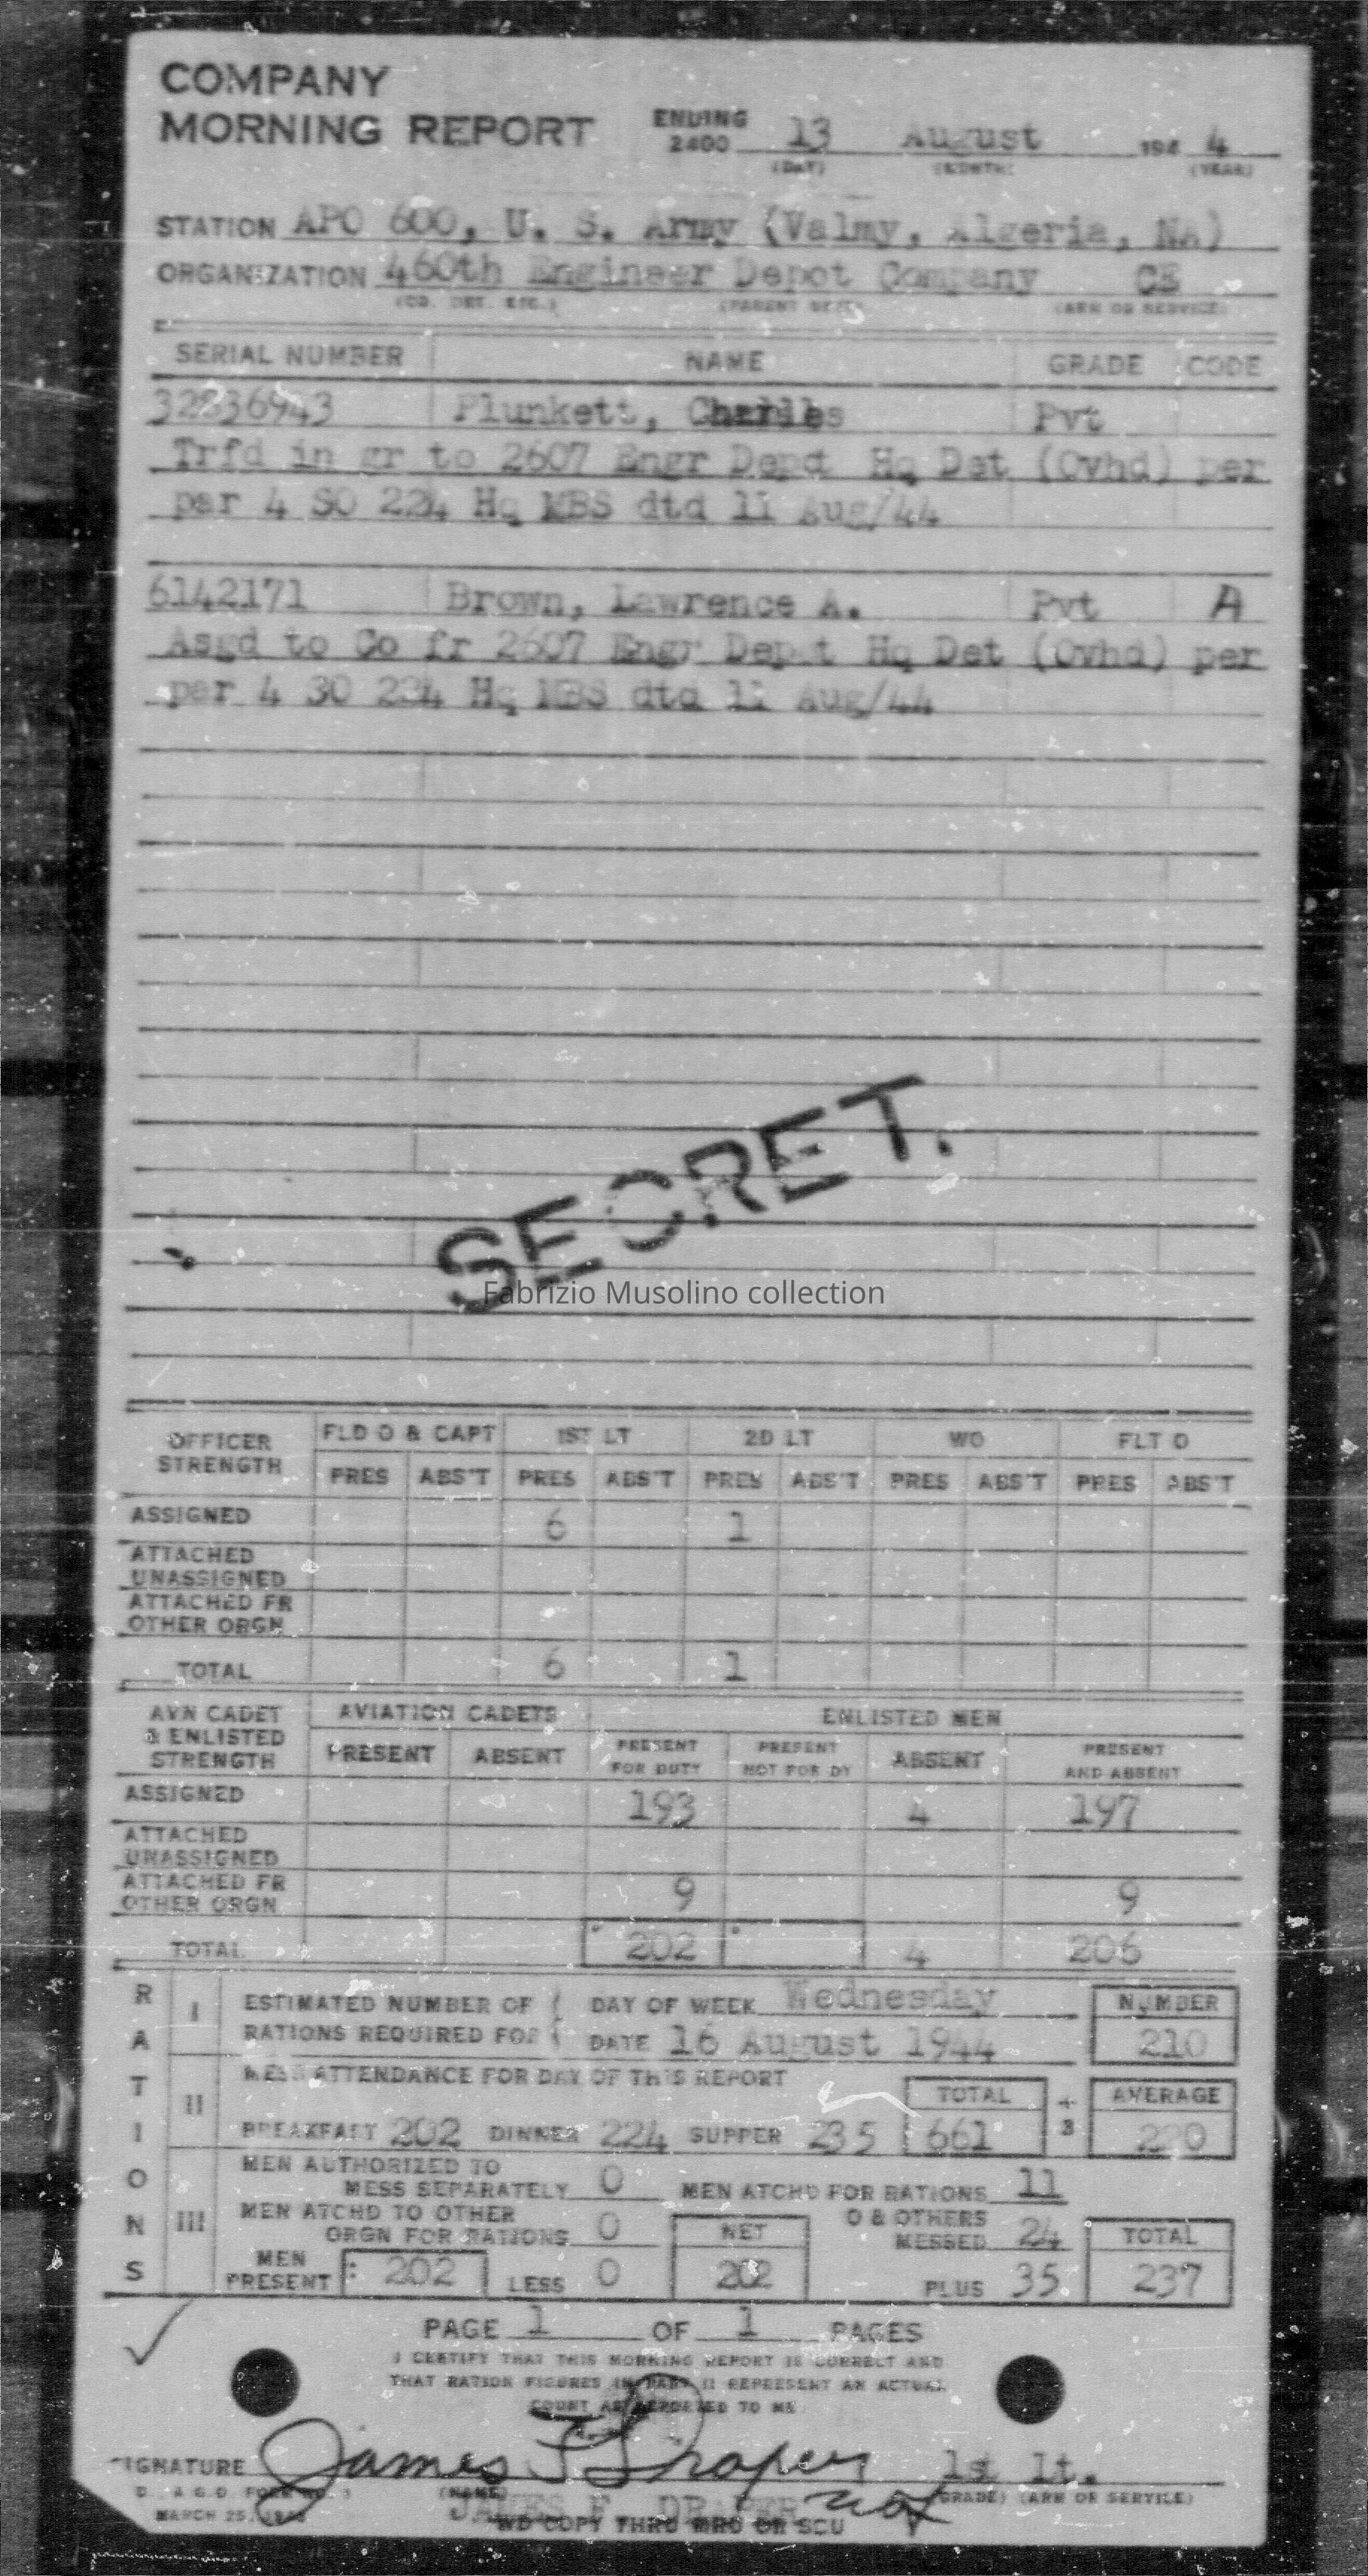 COMPANY
MORNING REPORT ENDING 2400 13 August 194 4
(DAY) (MONTH) (YEAR)
STATION APO 600, U. S. Army (Valmy, Algeria, NA)
ORGANIZATION 460th Engineer Depot Company CE
(CO. DET. ETC.) (PARENT (ARM OR SERVICE)
SERIAL NUMBER NAME GRADE CODE
32836943 Plunkett, Charles Pvt
Trfd in gr to 2607 Engr Depot Hq Det (Ovhd) per
par 4 SO 224 Hq MBS dtd 11 Aug/44
6142171 Brown, Lawrence A. Pvt A
Asgd to Co fr 2607 Engr Depot Hq Det (Ovhd) per
par 4 SO 224 Hq MBS dtd 11 Aug/44
SECRET.
Fabrizio Musolino collection
OFFICER STRENGTH FLD O & CAPT 1ST LT 2D LT WO FLT O
PRES ABS'T PRES ABS'T PRES ABS'T PRES ABS'T PRES ABS'T
ASSIGNED 6 1
ATTACHED
UNASSIGNED
ATTACHED FR
OTHER ORGN
TOTAL 6 1
AVN CADET & ENLISTED STRENGTH AVIATION CADETS ENLISTED MEN
PRESENT ABSENT PRESENT FOR DUTY PRESENT NOT FOR DY ABSENT PRESENT AND ABSENT
ASSIGNED 193 4 197
ATTACHED
UNASSIGNED
ATTACHED FR
OTHER ORGN 9 9
TOTAL 202 4 206
RATIONS
I ESTIMATED NUMBER OF DAY OF WEEK Wednesday NUMBER
RATIONS REQUIRED FOR DATE 16 August 1944 210
II MESS ATTENDANCE FOR DAY OF THIS REPORT TOTAL ÷ 3 AVERAGE
BREAKFAST 202 DINNER 224 SUPPER 235 661 220
III MEN AUTHORIZED TO
MESS SEPARATELY 0 MEN ATCHD FOR RATIONS 11
MEN ATCHD TO OTHER
ORGN FOR RATIONS 0 NET O & OTHERS MESSED 24 TOTAL
MEN PRESENT 202 LESS 0 202 PLUS 35 237
PAGE 1 OF 1 PAGES
I CERTIFY THAT THIS MORNING REPORT IS CORRECT AND
THAT RATION FIGURES IN PART II REPRESENT AN ACTUAL
COUNT AS REPORTED TO ME
SIGNATURE James F Draper 1st Lt.
A G O FORM NO. (NAME) (GRADE) (ARM OR SERVICE)
MARCH 25, JAMES F. DRAPER
WD COPY THRU MRU OR SCU